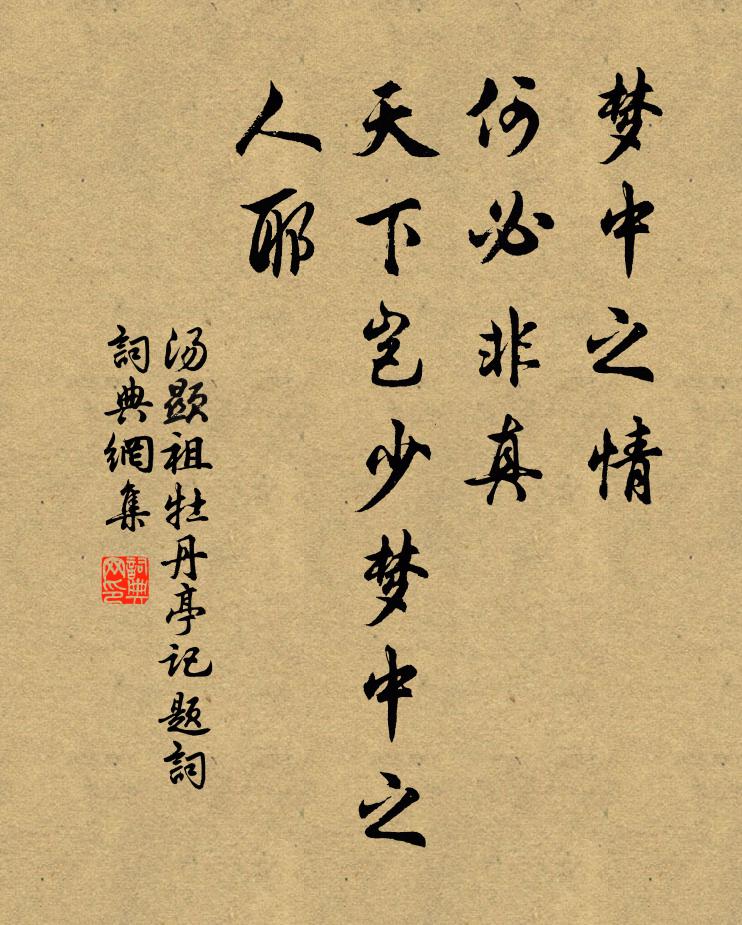 梦中之情
何必非真
天下岂少梦中之
人耶
汤顕祖牡丹亭记题詞
詞典網集
詞典
网印